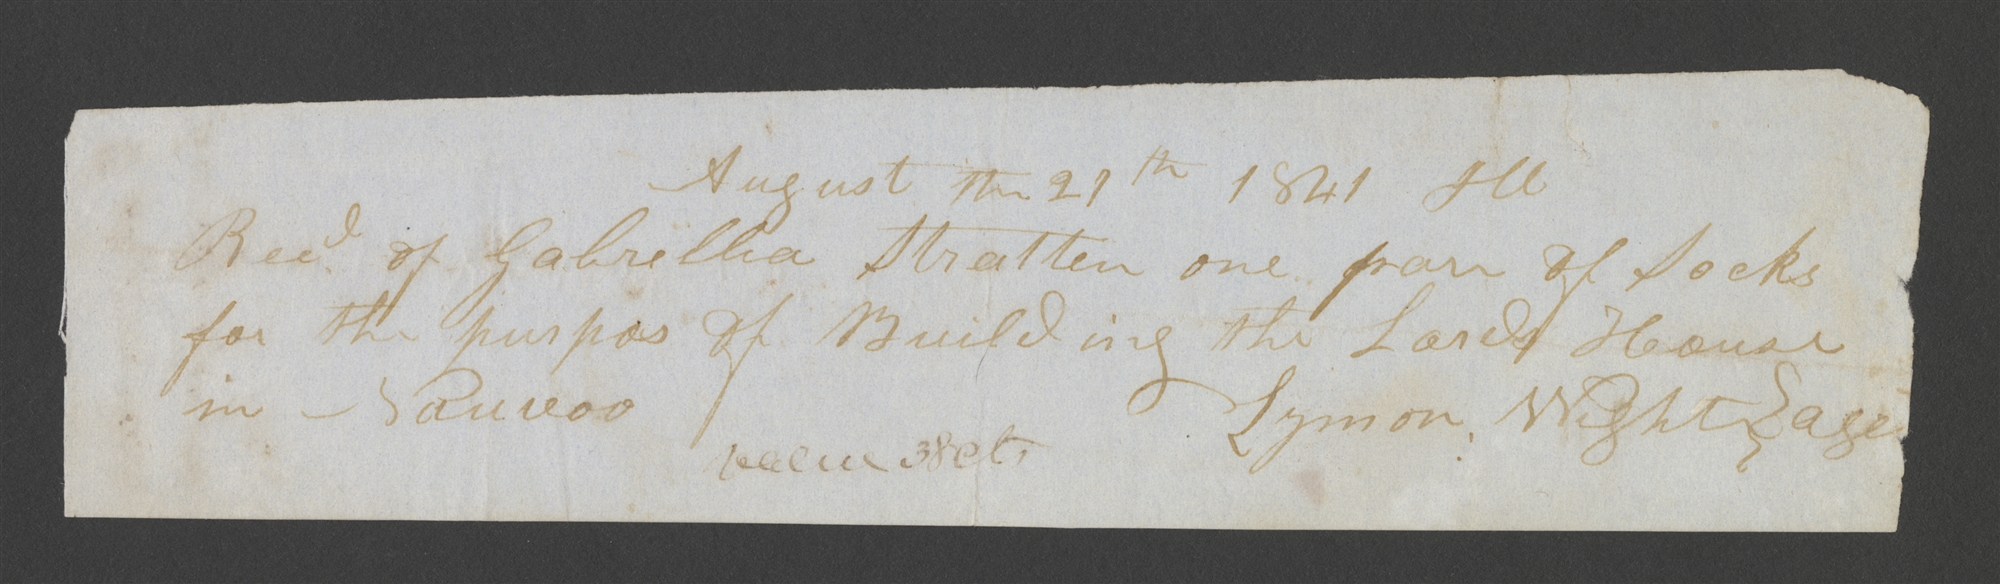 August the 21th 1841 Ill
Recd. of Gabrellia Stratten one parr of Socks
for the purpos of Building the Lords House
in Nauvoo
Lymon Wight } age
value 38cts